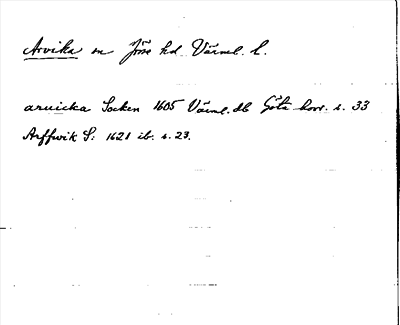 Arvika sn Jösse hd Värml. l.
aruicka Socken 1605 Värml. db Göta hovr. s. 33
Arffwik S: 1621 ib. s. 23.